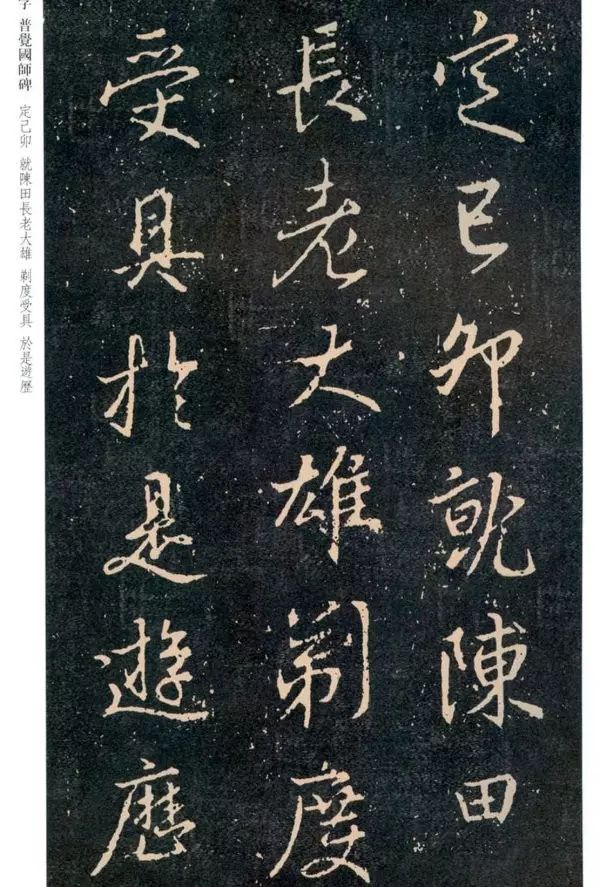 定己卯就陳田
長老大雄剃度
受具於是遊歷
字 普覺國師碑 定己卯 就陳田長老大雄 剃度受具 於是遊歷